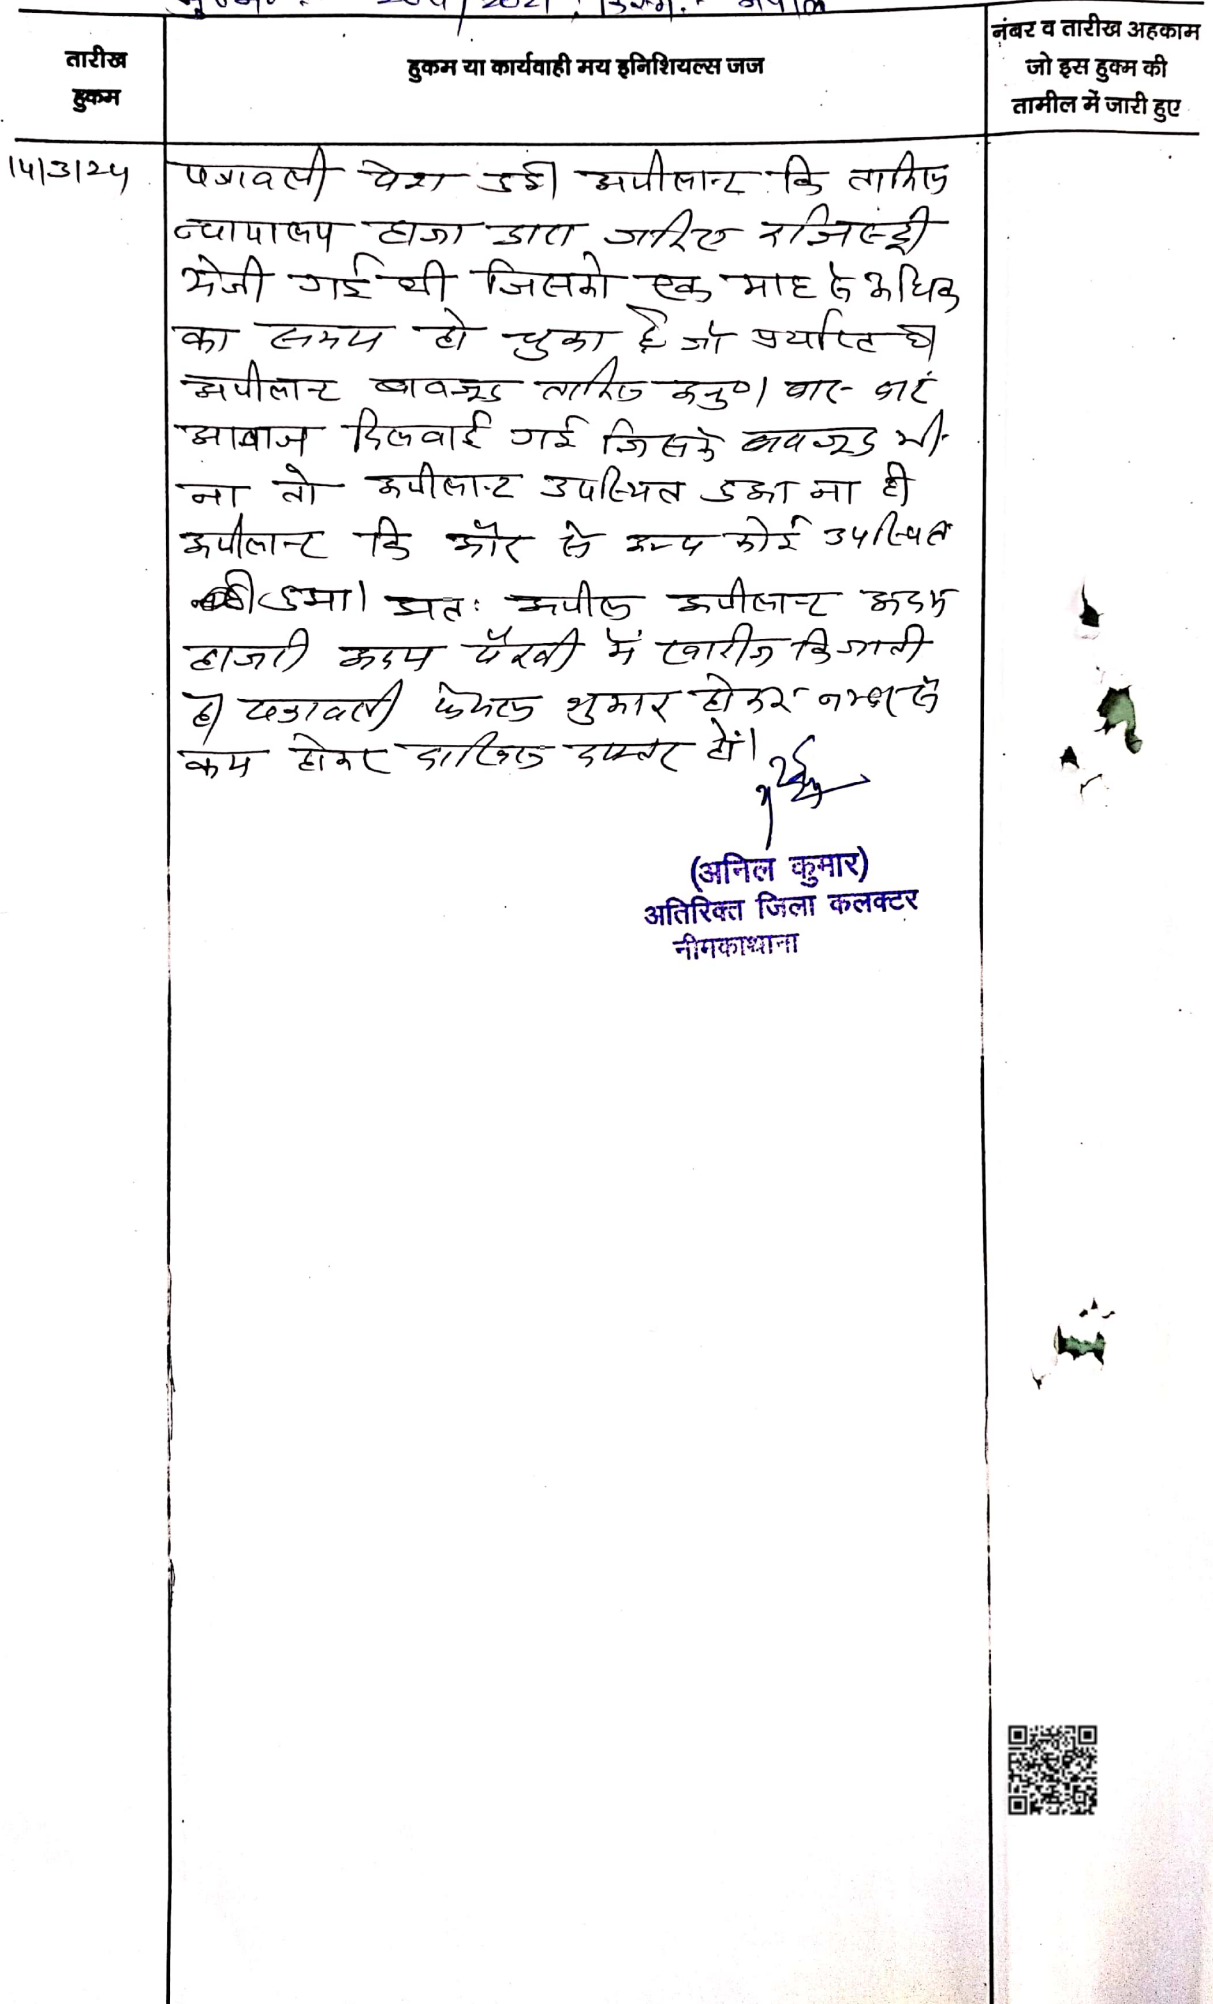 तारीख
हुकम
हुकम या कार्यवाही मय इनिशियल्स जज
नंबर व तारीख अहकाम
जो इस हुक्म की
तामील में जारी हुए
14/3/24
पत्रावली पेश हुई। अपीलान्ट कि तामिल
न्यायालय हाजा द्वारा जरिए रजिस्ट्री
भेजी गई थी जिसको एक माह से अधिक
का समय हो चुका है जो पर्याप्त है।
अपीलान्ट बावजूद तामिल अनु०। बार- बार
आवाज दिलवाई गई जिसके बावजूद भी
ना तो अपीलान्ट उपस्थित हुआ ना ही
अपीलान्ट कि और से अन्य कोई उपस्थित
हुआ। अतः अपील अपीलान्ट अदम
हाजरी अदम पैरवी में खारीज कि जाती
है। पत्रावली फैसल शुमार होकर नम्बर से
कम होकर दाखिल दफ्तर हों।
(अनिल कुमार)
अतिरिक्त जिला कलक्टर
नीमकाथाना